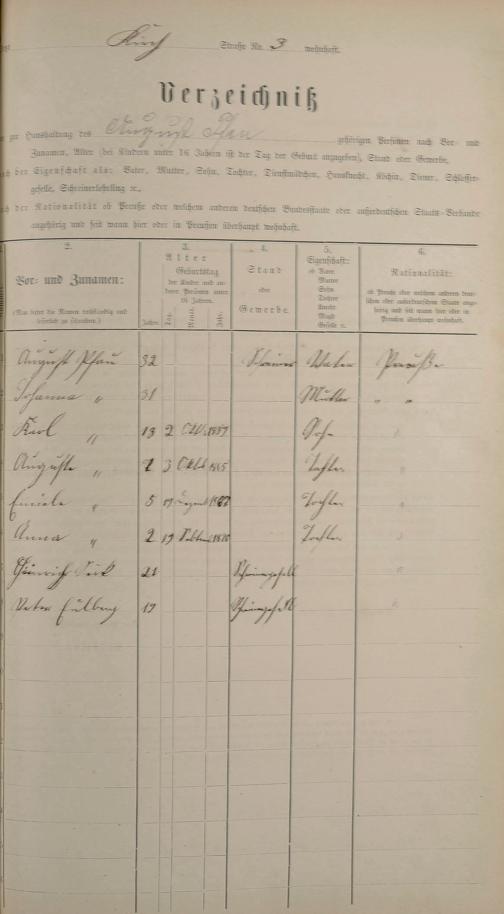 Kirch Straße No. 3 wohnhaft.
Verzeichniß
zur Haushaltung des August Pfau gehörigen Personen nach Vor- und
Zunamen, Alter (bei Kindern unter 16 Jahren ist der Tag der Geburt anzugeben), Stand oder Gewerbe,
nach der Eigenschaft als: Vater, Mutter, Sohn, Tochter, Dienstmädchen, Hausknecht, Köchin, Diener, Schlosser-
geselle, Schreinerlehrling ꝛc.,
nach der Nationalität ob Preuße oder welchem anderen deutschen Bundesstaate oder außerdeutschen Staats-Verbande
angehörig und seit wann hier oder in Preußen überhaupt wohnhaft.
2. 3. 4. 5. 6.
Vor- und Zunamen:
(Man bittet die Namen vollständig und leserlich zu schreiben.)
Alter
Jahre.
Geburtstag
der Kinder und an-
derer Personen unter
16 Jahren.
Tag. Monat. Jahr.
Stand
oder
Gewerbe.
Eigenschaft:
ob Vater
Mutter
Sohn
Tochter
Knecht
Magd
Geselle ꝛc.
Nationalität:
ob Preuße oder welchem anderen deut-
schen oder außerdeutschen Staate ange-
hörig und seit wann hier oder in
Preußen überhaupt wohnhaft.
August Pfau 32 Schreiner Vater Preuße
Johanna " 31 Mutter " "
Karl " 13 2 Sohn "
Auguste " 3 Tochter "
" 5 19 Tochter "
Anna " 2 19 Tochter "
Heinrich 21 Schreinergesell "
19 Schreinergesell "